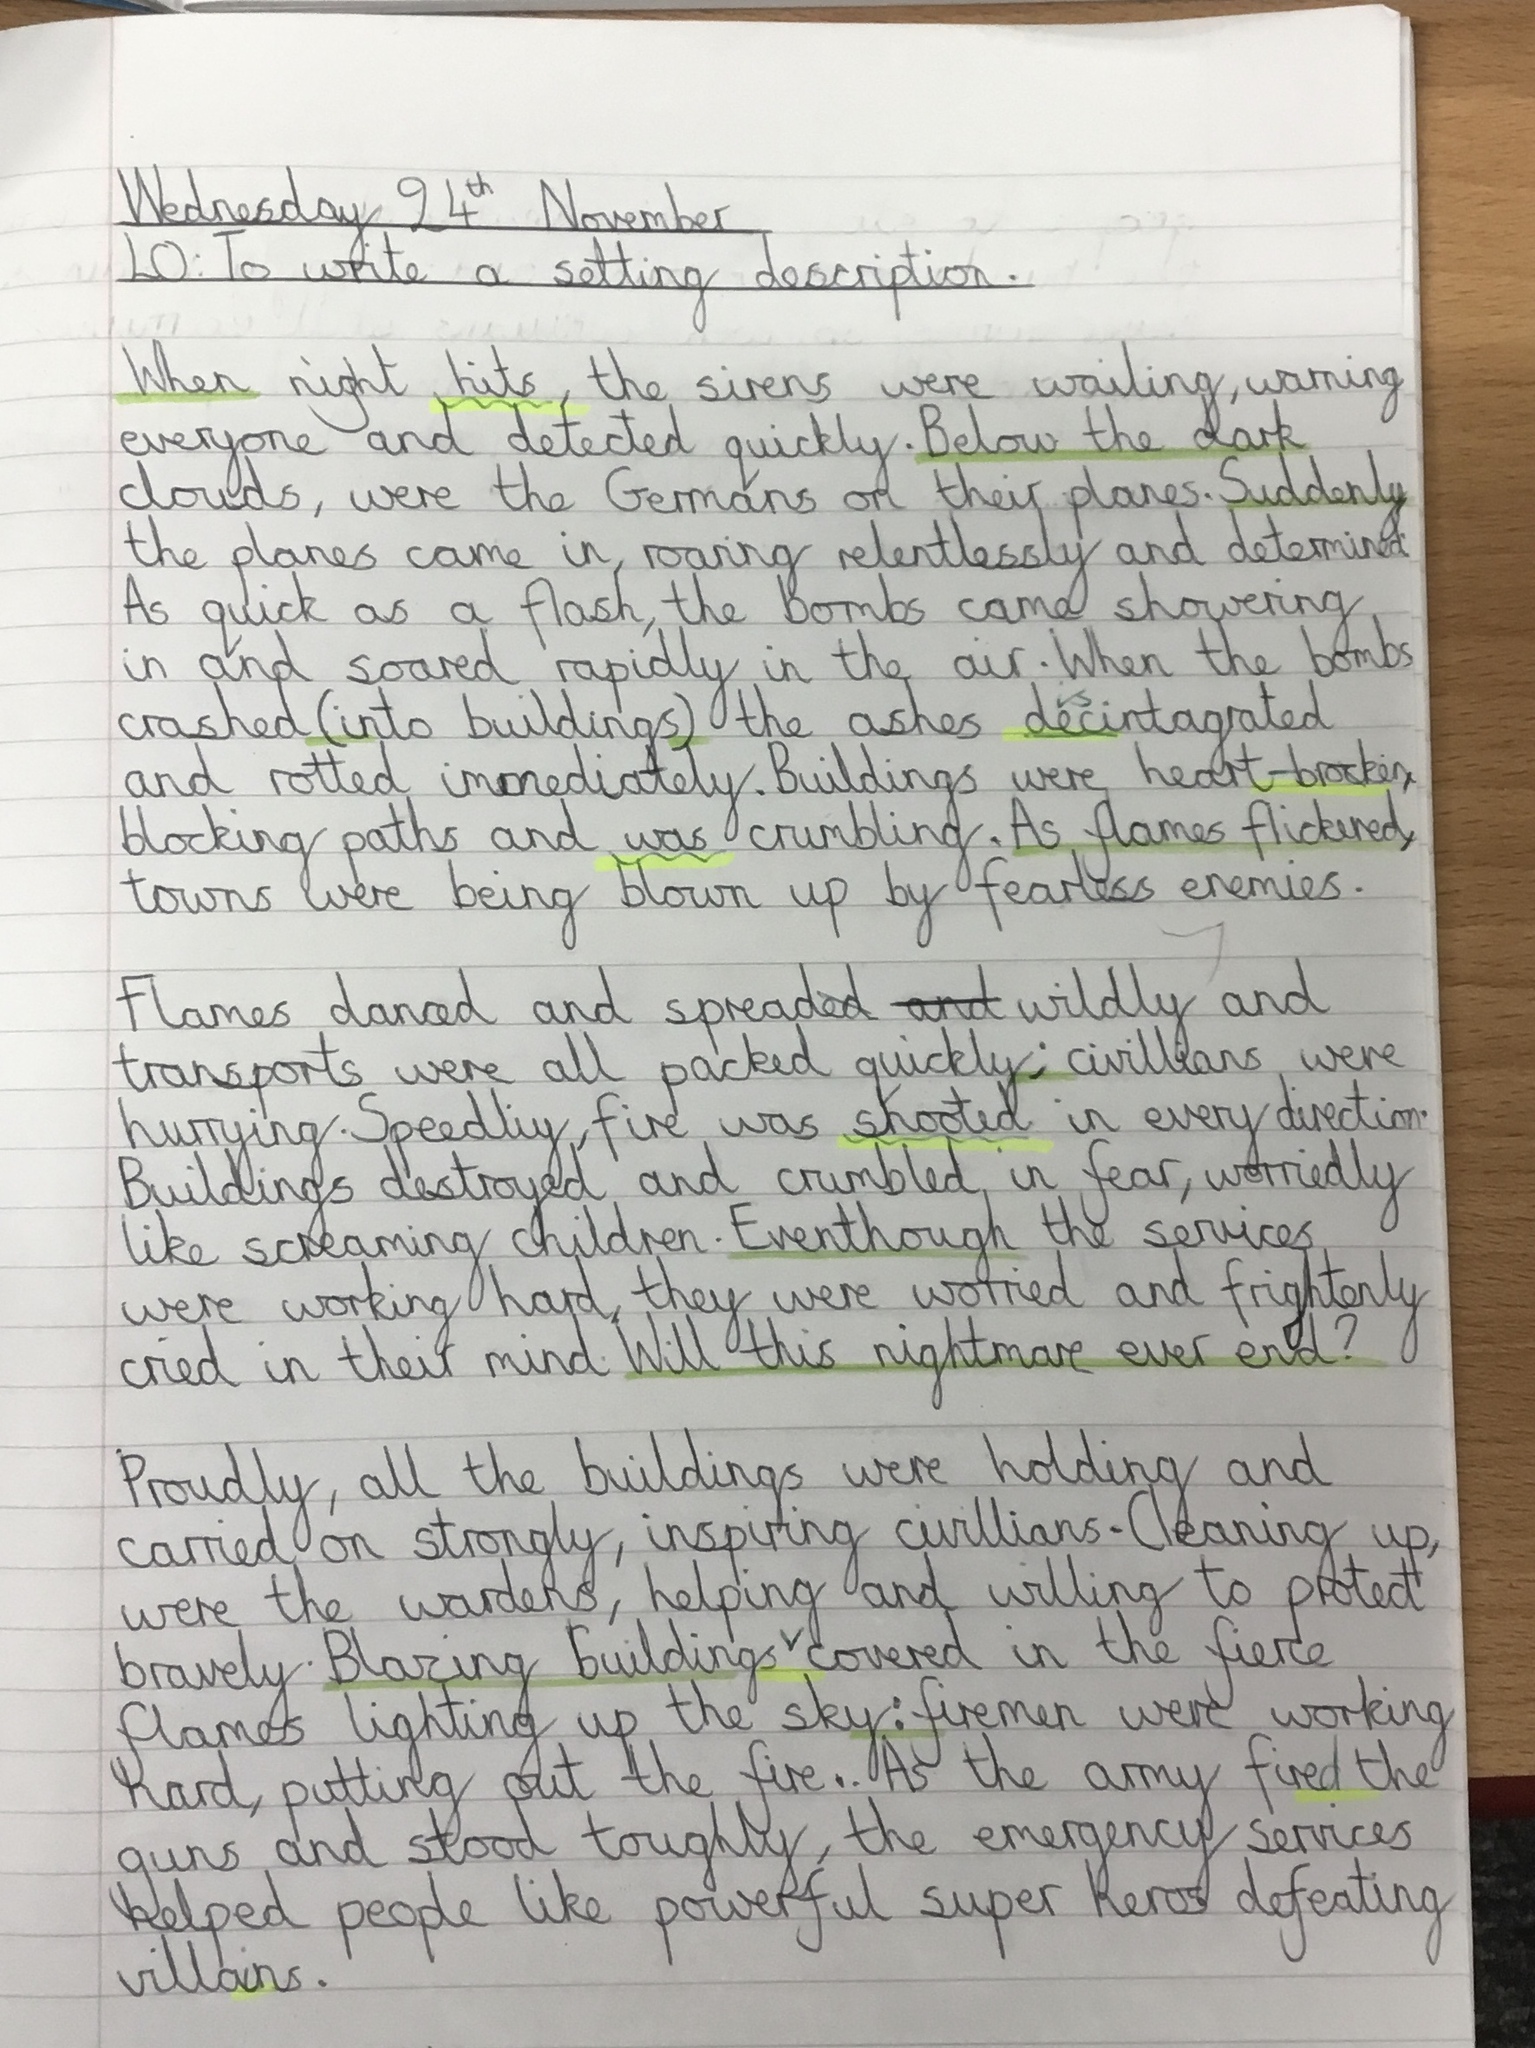 Wednesday 24th November
LO: To write a setting description.
When night hits, the sirens were wailing, warning
everyone and detected quickly. Below the dark
clouds, were the Germans on their planes. Suddenly
the planes came in, roaring relentlessly and determined.
As quick as a flash, the bombs came showering
in and soared rapidly in the air. When the bombs
crashed (into buildings) the ashes decintagrated
and rotted immediately. Buildings were heart-brocken,
blocking paths and was crumbling. As flames flickered,
towns were being blown up by fearless enemies.
Flames danced and spreaded and wildly and
transports were all packed quickly; civillians were
hurrying. Speedliy, fire was shooted in every direction.
Buildings destroyed and crumbled in fear, worriedly
like screaming children. Eventhough the services
were working hard, they were worried and frightenly
cried in their mind. Will this nightmare ever end?
Proudly, all the buildings were holding and
carried on strongly, inspiring civillians. Cleaning up,
were the wardens, helping and willing to protect
bravely. Blazing buildings covered in the fierce
flames lighting up the sky: firemen were working
hard, putting out the fire... As the army fired the
guns and stood toughly, the emergency services
helped people like powerful super heros defeating
villains.